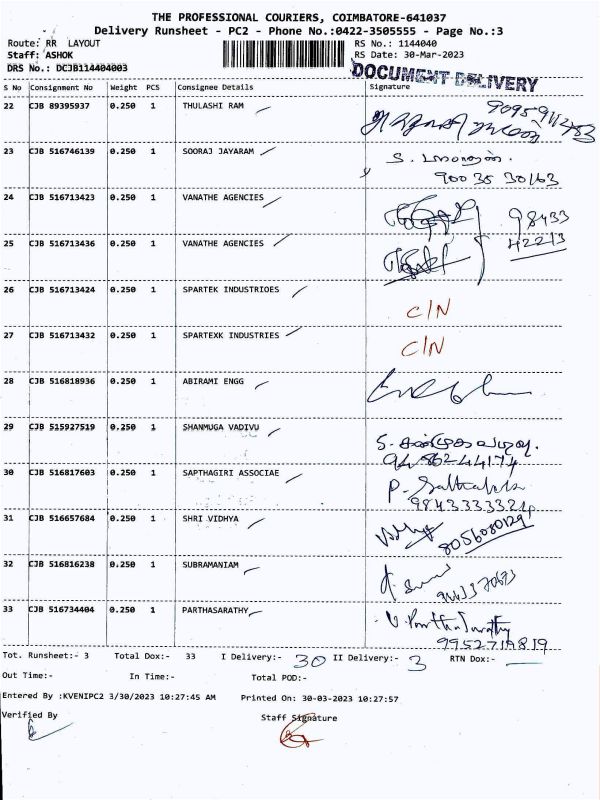 THE PROFESSIONAL COURIERS, COIMBATORE-641037
Delivery Runsheet - PC2 - Phone No.:0422-3505555 - Page No.:3
Route: RR LAYOUT RS No.: 1144040
Staff: ASHOK RS Date: 30-Mar-2023
DRS No.: DCJB114404003 DOCUMENT DELIVERY
S No Consignment No Weight PCS Consignee Details Signature
22 CJB 89395937 0.250 1 THULASHI RAM
23 CJB 516746139 0.250 1 SOORAJ JAYARAM S.
90035 30163
24 CJB 516713423 0.250 1 VANATHE AGENCIES 98433
25 CJB 516713436 0.250 1 VANATHE AGENCIES 42213
26 CJB 516713424 0.250 1 SPARTEK INDUSTRIOES C/N
27 CJB 516713432 0.250 1 SPARTEXK INDUSTRIES C/N
28 CJB 516818936 0.250 1 ABIRAMI ENGG
29 CJB 515927519 0.250 1 SHANMUGA VADIVU
30 CJB 516817603 0.250 1 SAPTHAGIRI ASSOCIAE P.
31 CJB 516657684 0.250 1 SHRI VIDHYA 8056080129
32 CJB 516816238 0.250 1 SUBRAMANIAM
33 CJB 516734404 0.250 1 PARTHASARATHY V. Parthasarathy
9952719819
Tot. Runsheet:- 3 Total Dox:- 33 I Delivery:- 30 II Delivery:- 3 RTN Dox:-
Out Time:- In Time:- Total POD:-
Entered By :KVENIPC2 3/30/2023 10:27:45 AM Printed On: 30-03-2023 10:27:57
Verified By Staff Signature